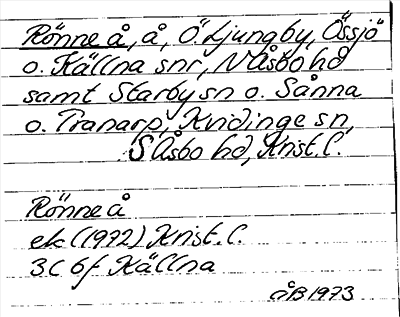 Rönne å, å, Ö. Ljungby, Össjö
o. Källna snr, N Åsbo hd
samt Starby sn o. Sånna
o. Tranarp, Kvidinge sn,
S Åsbo hd, Krist. l.
Rönne å
ek (1972) Krist. l.
3C 6f Källna
ÅB 1973